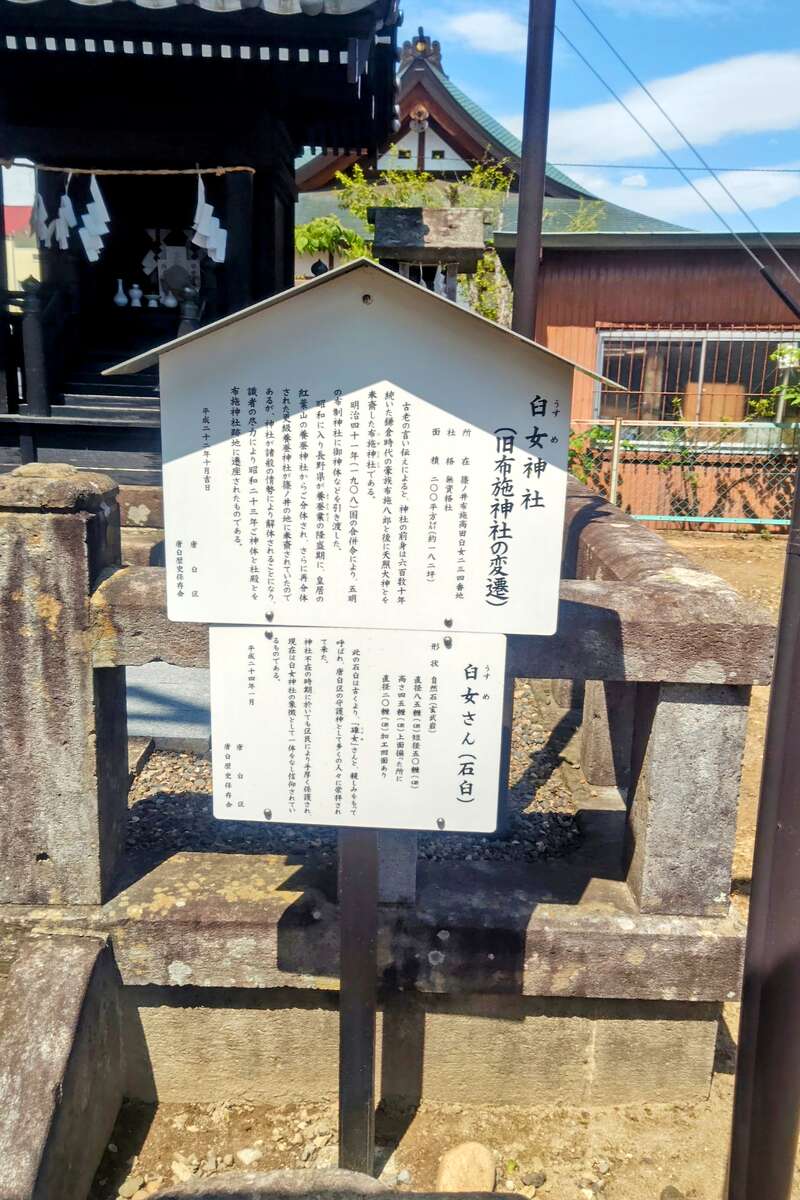 臼女神社
うすめ
(旧布施神社の変遷)
所在 篠ノ井布施高田臼女二三四番地
社格 無資格社
面積 二〇〇平方㍍(約一八二坪)
古老の言い伝えによると、神社の前身は六百数十年
続いた鎌倉時代の豪族布施八郎と後に天照大神とを
奉斎した布施神社である。
明治四十一年(一九〇八)国の合併令により、五明
の布制神社に御神体などを引き渡した。
昭和に入り長野県が養蚕業の隆盛期に、皇居の
紅葉山の養蚕神社からご分体され、さらに再分体
された更級養蚕神社が篠ノ井の地に奉斎されていたので
あるが、神社が諸般の情勢により解体されることになり、
識者の尽力により昭和二十三年ご神体と社殿とを
布施神社跡地に遷座されたものである。
平成二十二年十月吉日
唐臼区
唐臼歴史保存会
臼女さん(石臼)
うすめ
形状 自然石(玄武岩)
直径八五糎(㌢)短径五〇糎(㌢)
高さ四五糎(㌢)上面揃った所に
直径二〇糎(㌢)加工凹面あり
此の石臼は古くより、「碓女」さんと、親しみをもって
呼ばれ、唐臼区の守護神として多くの人々に崇拝され
て来た。
神社不在の時期に於いても区民により手厚く保護され、
現在は臼女神社の象徴として一体をなし信仰されてい
るものである。
平成二十四年一月
唐臼区
唐臼歴史保存会